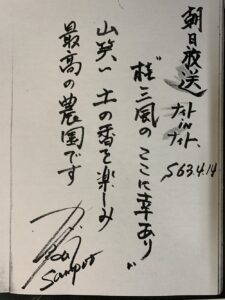 朝日放送
ナイト in ナイト、
S63.4.14
"桂三風の ここに幸あり"
山笑い 土の香を楽しみ
最高の農園です